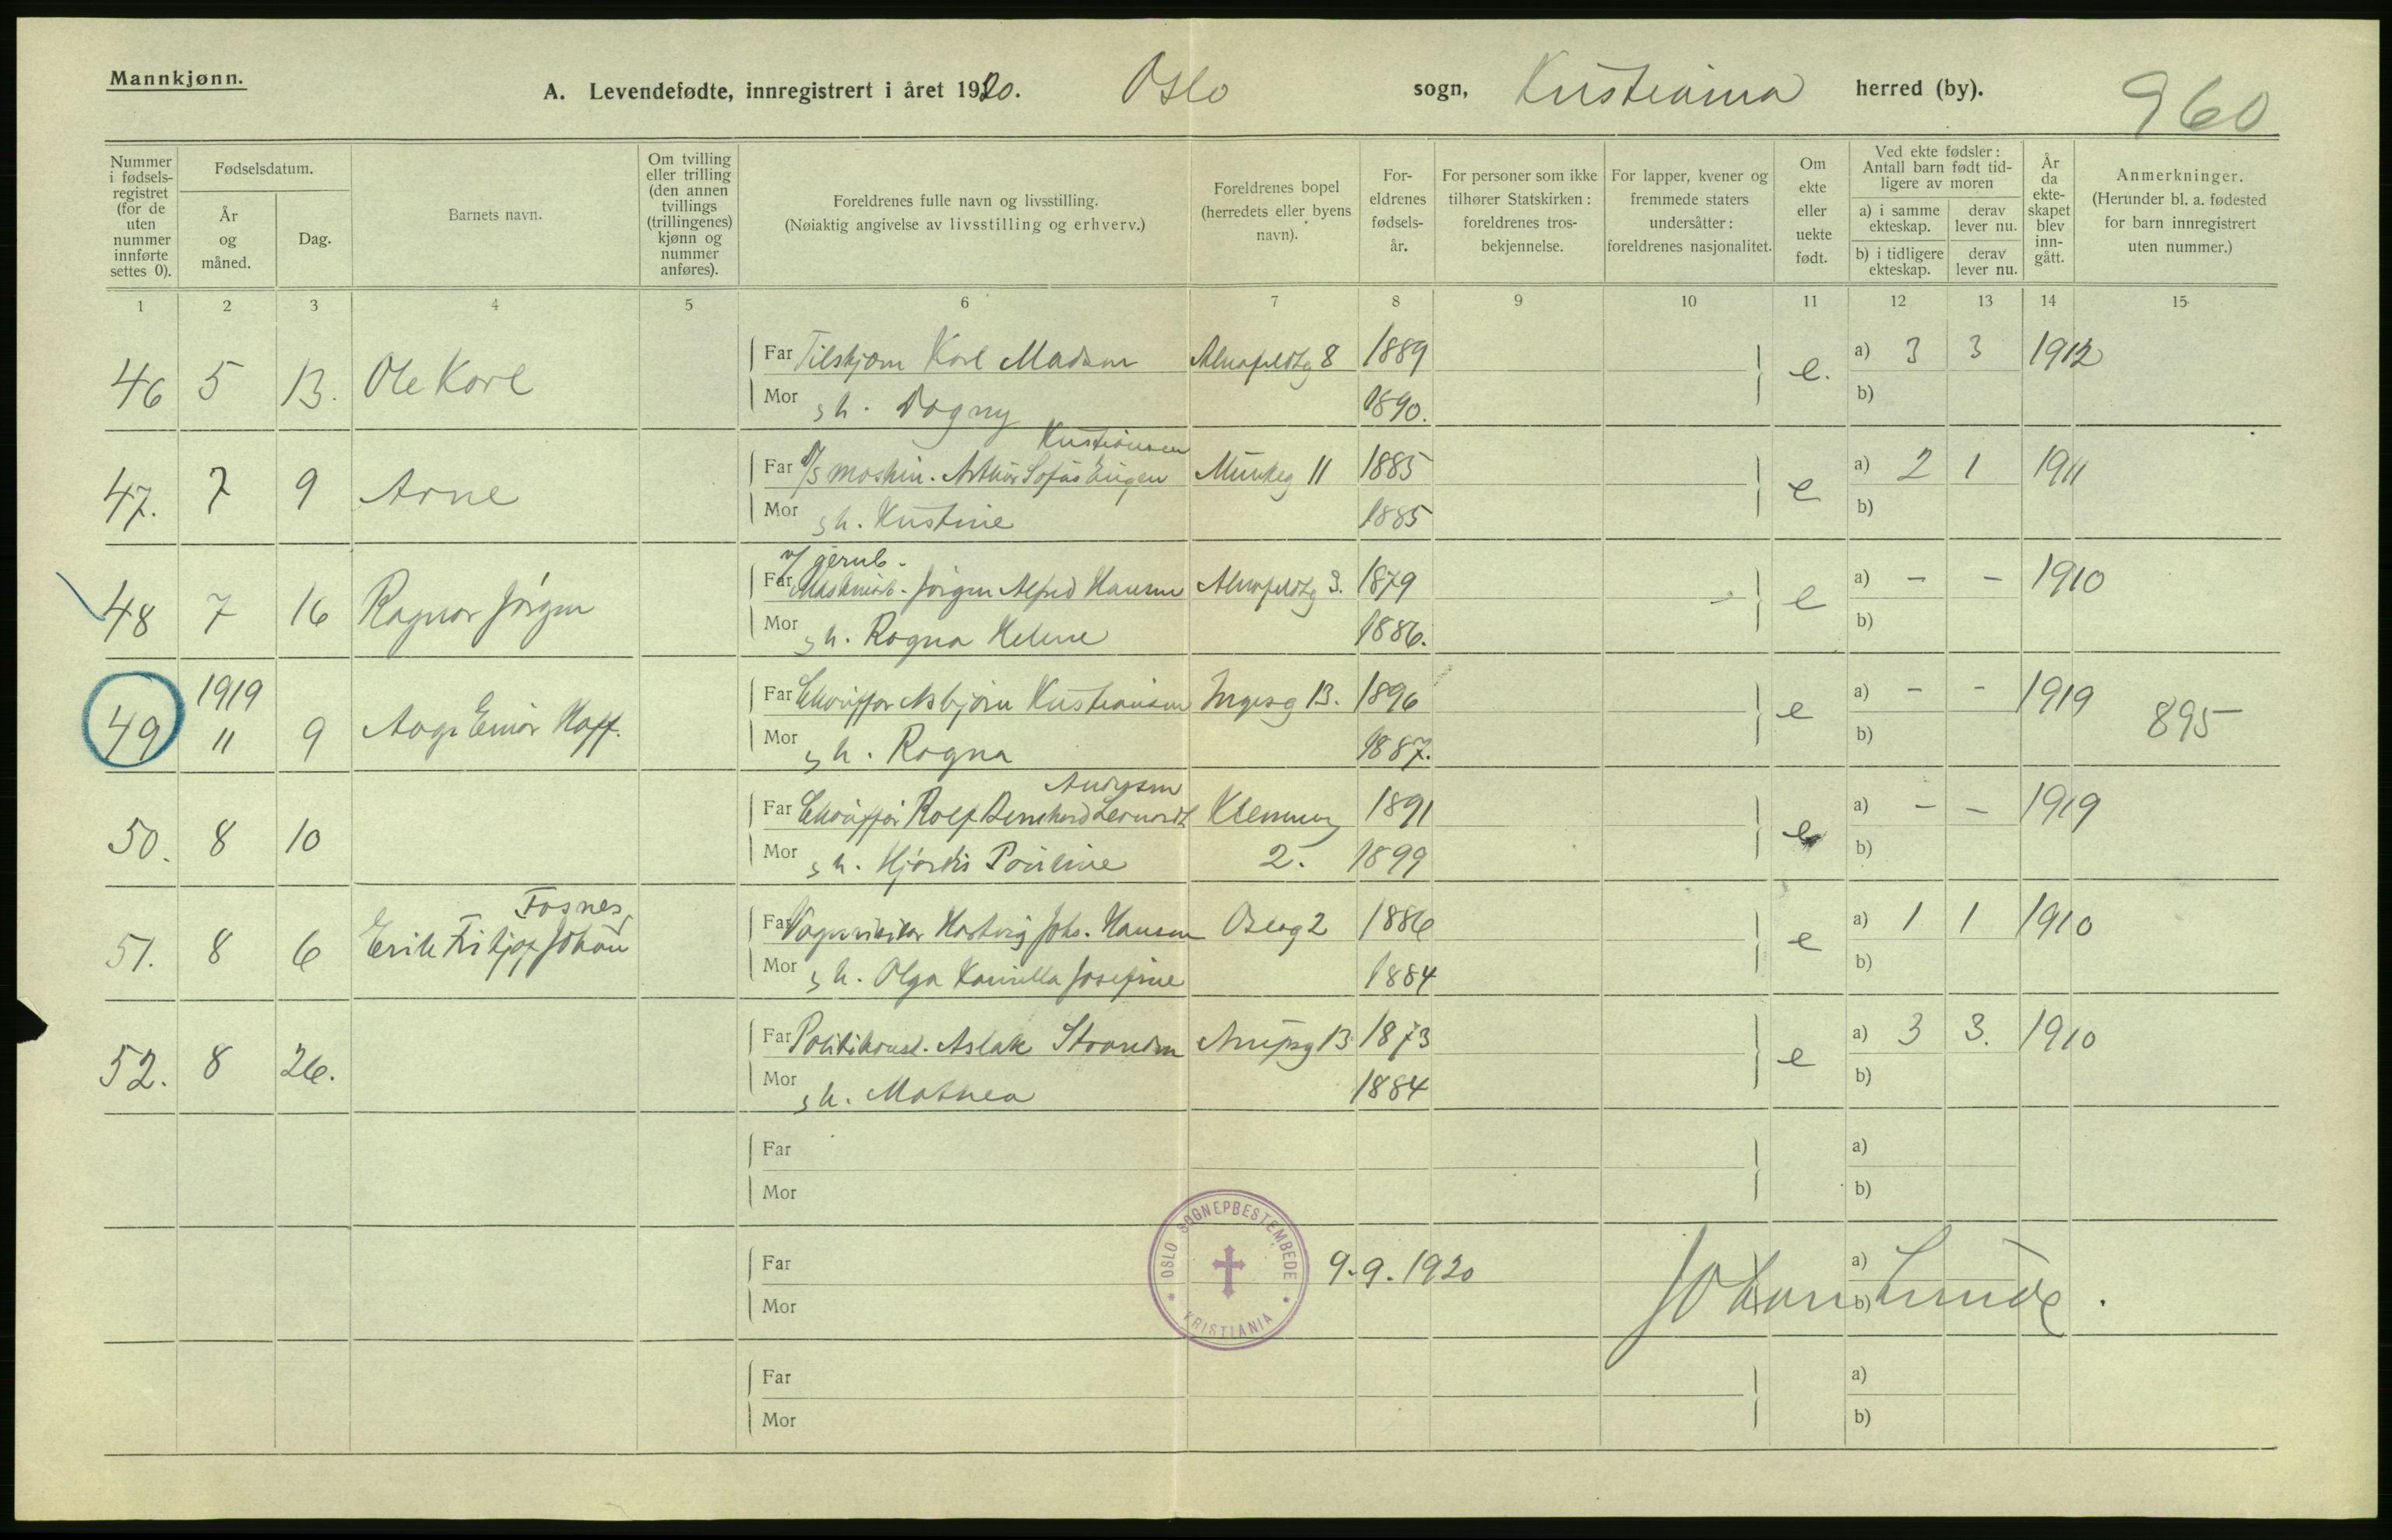 Mannkjønn.
A. Levendefødte, innregistrert i året 1920. Oslo sogn, Kristiania herred (by). 960
Nummer i fødsels-registret (for de uten nummer innførte settes 0).
Fødselsdatum.
År og måned.
Dag.
Barnets navn.
Om tvilling eller trilling (den annen tvillings (trillingenes) kjønn og nummer anføres).
Foreldrenes fulle navn og livsstilling.
(Nøiaktig angivelse av livsstilling og erhverv.)
Foreldrenes bopel (herredets eller byens navn).
For-eldrenes fødsels-år.
For personer som ikke tilhører Statskirken: foreldrenes tros-bekjennelse.
For lapper, kvener og fremmede staters undersåtter: foreldrenes nasjonalitet.
Om ekte eller uekte født.
Ved ekte fødsler: Antall barn født tid-ligere av moren
a) i samme ekteskap.
derav lever nu.
b) i tidligere ekteskap.
derav lever nu.
År da ekte-skapet blev inn-gått.
Anmerkninger.
(Herunder bl. a. fødested for barn innregistrert uten nummer.)
1 2 3 4 5 6 7 8 9 10 11 12 13 14 15
46 5 13. Ole Karl Far Karl Madsen 8 1889 e. a) 3 3 1912
Mor s h. Dagny 1890. b)
Kristiansen
47. 7 9 Arne Far maskin. Arthur Sofus Eugen Munkeg 11 1885 e a) 2 1 1911
Mor s h. Kristine 1885 b)
48 7 16 Ragnar Jörgen Far Jörgen Alfred Hansen 3. 1879 e a) - - 1910
Mor s h. Ragna Helene 1886. b)
1919
49 11 9 Aage Einar Hoff. Far Chauffør Asbjørn Kristiansen Ingesg 13. 1896 e a) - - 1919 895
Mor s h. Ragna 1887. b)
Andersen
50. 8 10 Far Chauffør Rolf Bernhard Leonard 1891 e a) - - 1919
Mor s h. Hjørdis Pauline 2. 1899 b)
Fosnes
51. 8 6 Erik Filipp Johan Far Vognvisitør Hartvig Johs. Hansen Oslog 2 1886 e a) 1 1 1910
Mor s h. Olga Kamilla Josefine 1884 b)
52. 8 26. Far Politikonst. Aslak Strandm Arupsg 13 1873 e a) 3 3. 1910
Mor s h. Mathea 1884 b)
Far a)
Mor b)
Far a)
Mor b)
OSLO SOGNEPRESTEMBEDE * KRISTIANIA *
9.9.1920 Johan Lunde.
Far a)
Mor b)